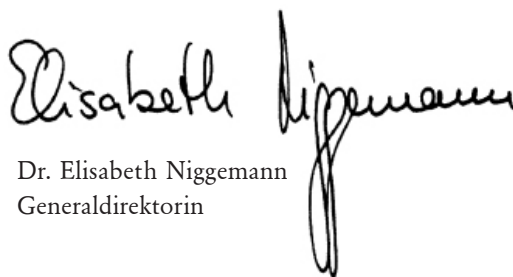 Elisabeth Niggemann
Dr. Elisabeth Niggemann
Generaldirektorin